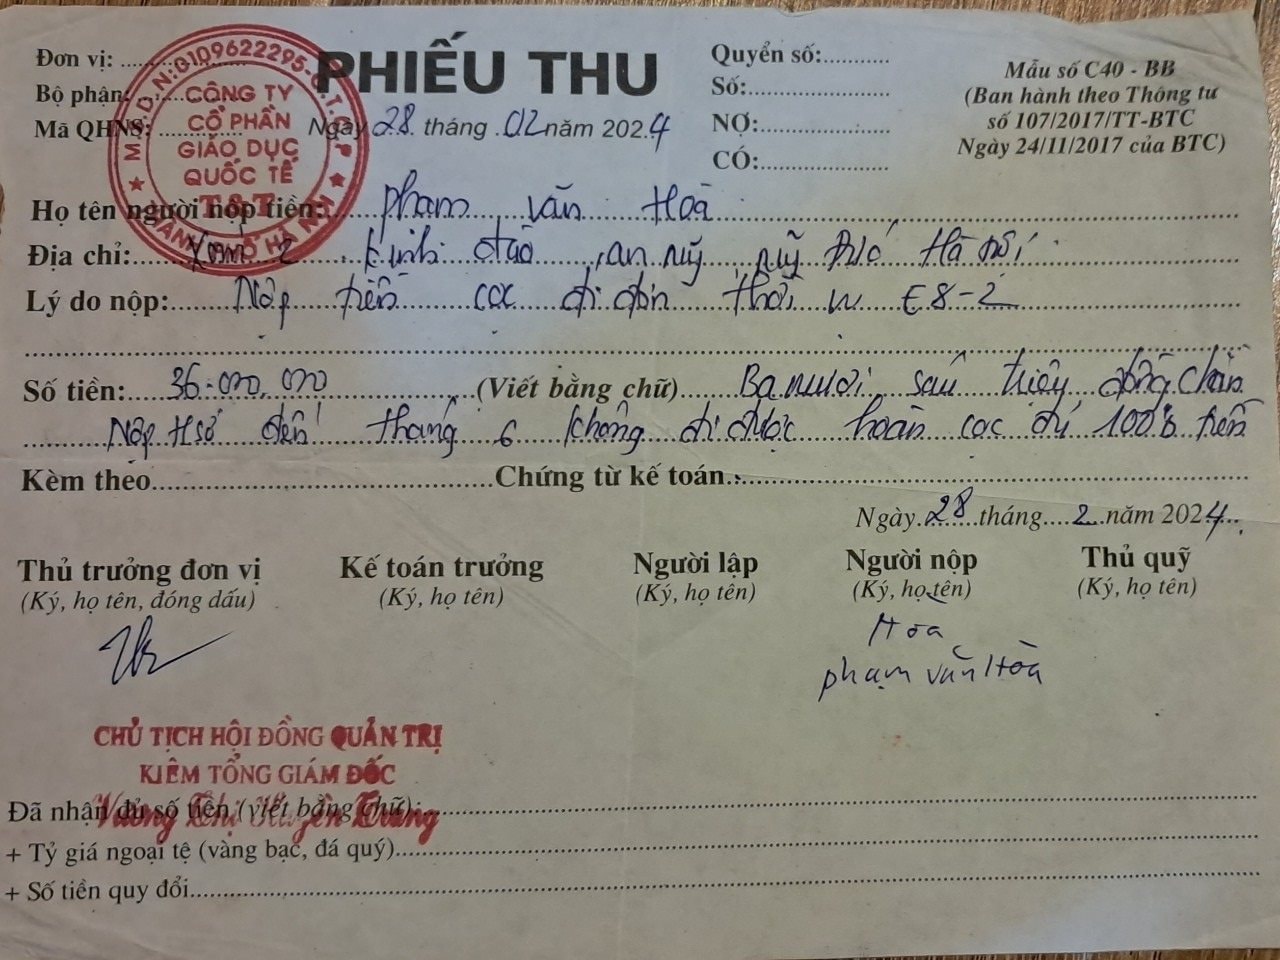 Đơn vị:
PHIẾU THU
Quyển số:
Bộ phận:
Số:
Mẫu số C40 - BB
(Ban hành theo Thông tư
số 107/2017/TT-BTC
Ngày 24/11/2017 của BTC)
Mã QHNS:
Ngày 28 tháng 02 năm 2024
NỢ:
CÓ:
M.S.D.N:0109622295-C.T.C.P
CÔNG TY
CỔ PHẦN
GIÁO DỤC
QUỐC TẾ
T&T
THÀNH PHỐ HÀ NỘI
Họ tên người nộp tiền: phạm văn Hoà
Địa chỉ: Xóm 2 kinh đào, an mỹ, mỹ Đức Hà Nội
Lý do nộp: Nộp tiền cọc đi đơn thời vụ E8-2
Số tiền: 36.000.000 (Viết bằng chữ) Ba mươi sáu triệu đồng chẵn
Nộp Hsơ đến tháng 6 không đi được hoàn cọc đủ 100% tiền
Kèm theo Chứng từ kế toán
Ngày 28 tháng 2 năm 2024
Thủ trưởng đơn vị Kế toán trưởng Người lập Người nộp Thủ quỹ
(Ký, họ tên, đóng dấu) (Ký, họ tên) (Ký, họ tên) (Ký, họ tên) (Ký, họ tên)
Hòa
phạm văn Hòa
CHỦ TỊCH HỘI ĐỒNG QUẢN TRỊ
KIÊM TỔNG GIÁM ĐỐC
Vương Thị Huyền Trang
Đã nhận đủ số tiền (viết bằng chữ):
+ Tỷ giá ngoại tệ (vàng bạc, đá quý)
+ Số tiền quy đổi